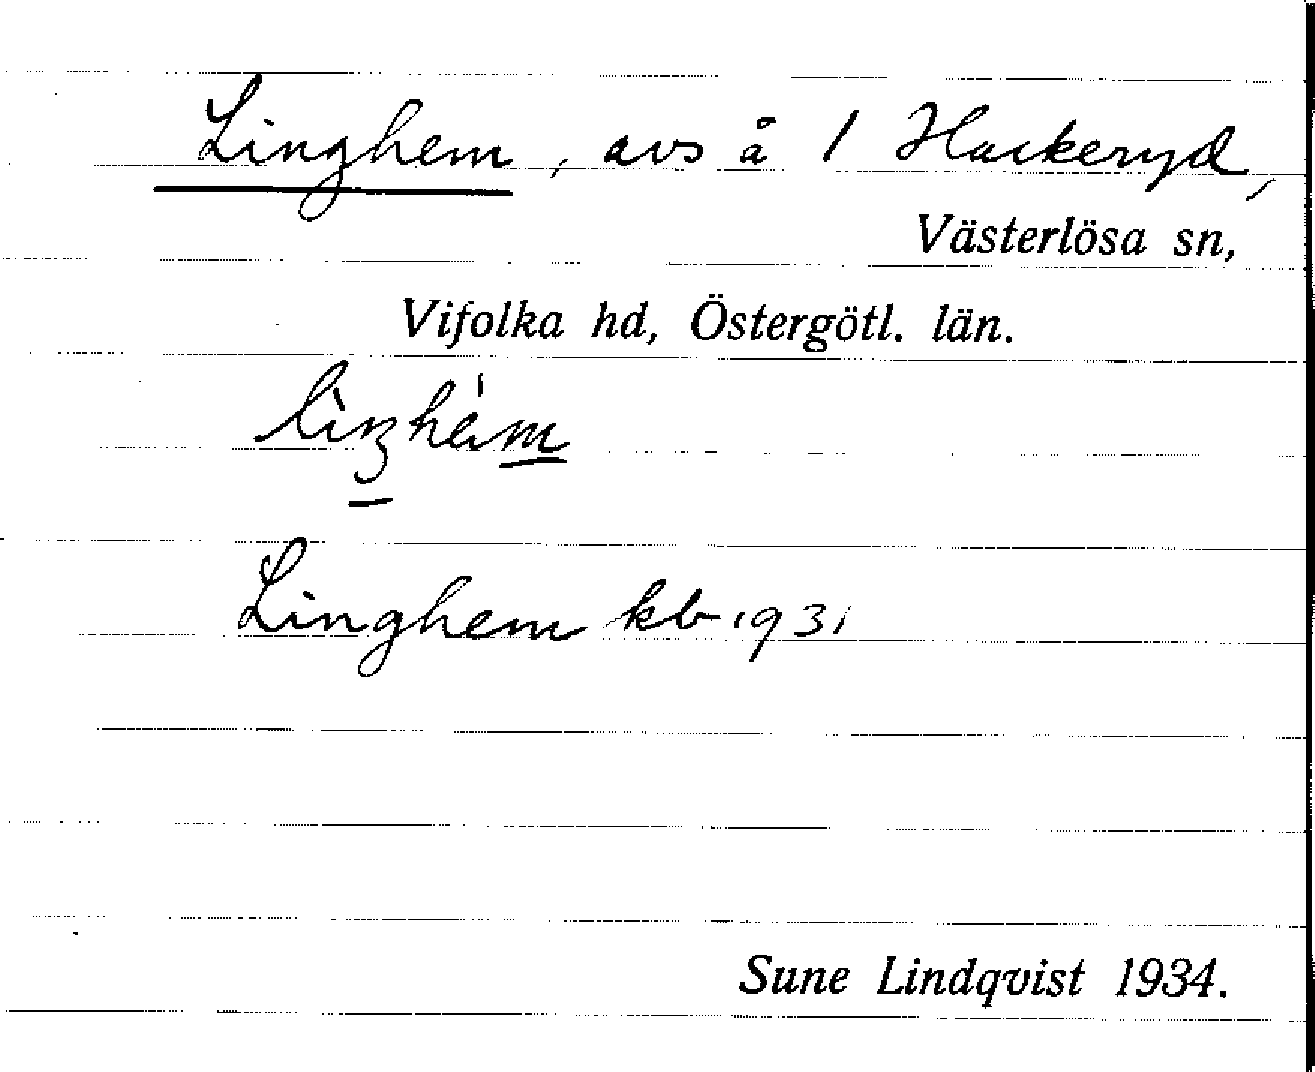 Linghem, avs å 1 Hackeryd,
Västerlösa sn,
Vifolka hd, Östergötl. län.
Linghem kb 1931
Sune Lindqvist 1934.